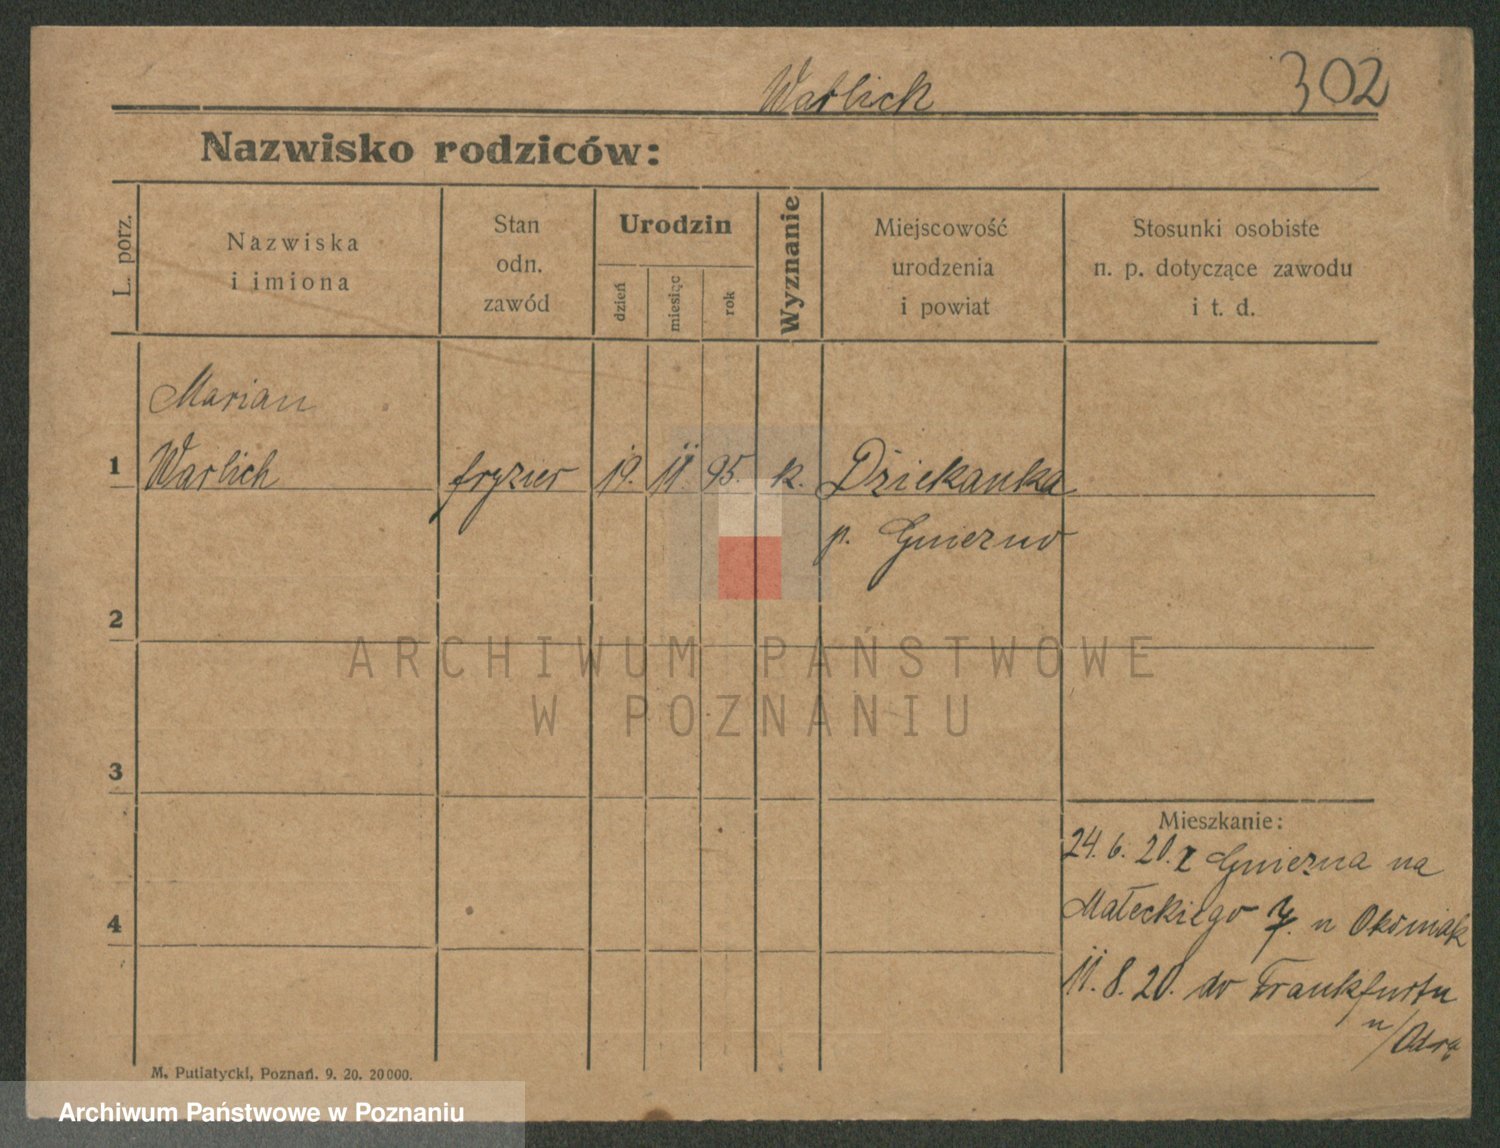 302
Warlick
Nazwisko rodziców:
L. porz.
Nazwiska
i imiona
Stan
odn.
zawód
Urodzin
dzień
miesiąc
rok
Wyznanie
Miejscowość
urodzenia
i powiat
Stosunki osobiste
n. p. dotyczące zawodu
i t. d.
Marian
1 Warlich fryzier 19. 11. 95. k. Dziekanka
p. Gniezno
2
3
4
Mieszkanie:
24. 6. 20. z Gniezna na
Małeckiego 7. u Okoniak
11. 8. 20. do Frankfurtu
n/Odrą
M. Putiatycki, Poznań. 9. 20. 20000.
ARCHIWUM PAŃSTWOWE
W POZNANIU
Archiwum Państwowe w Poznaniu